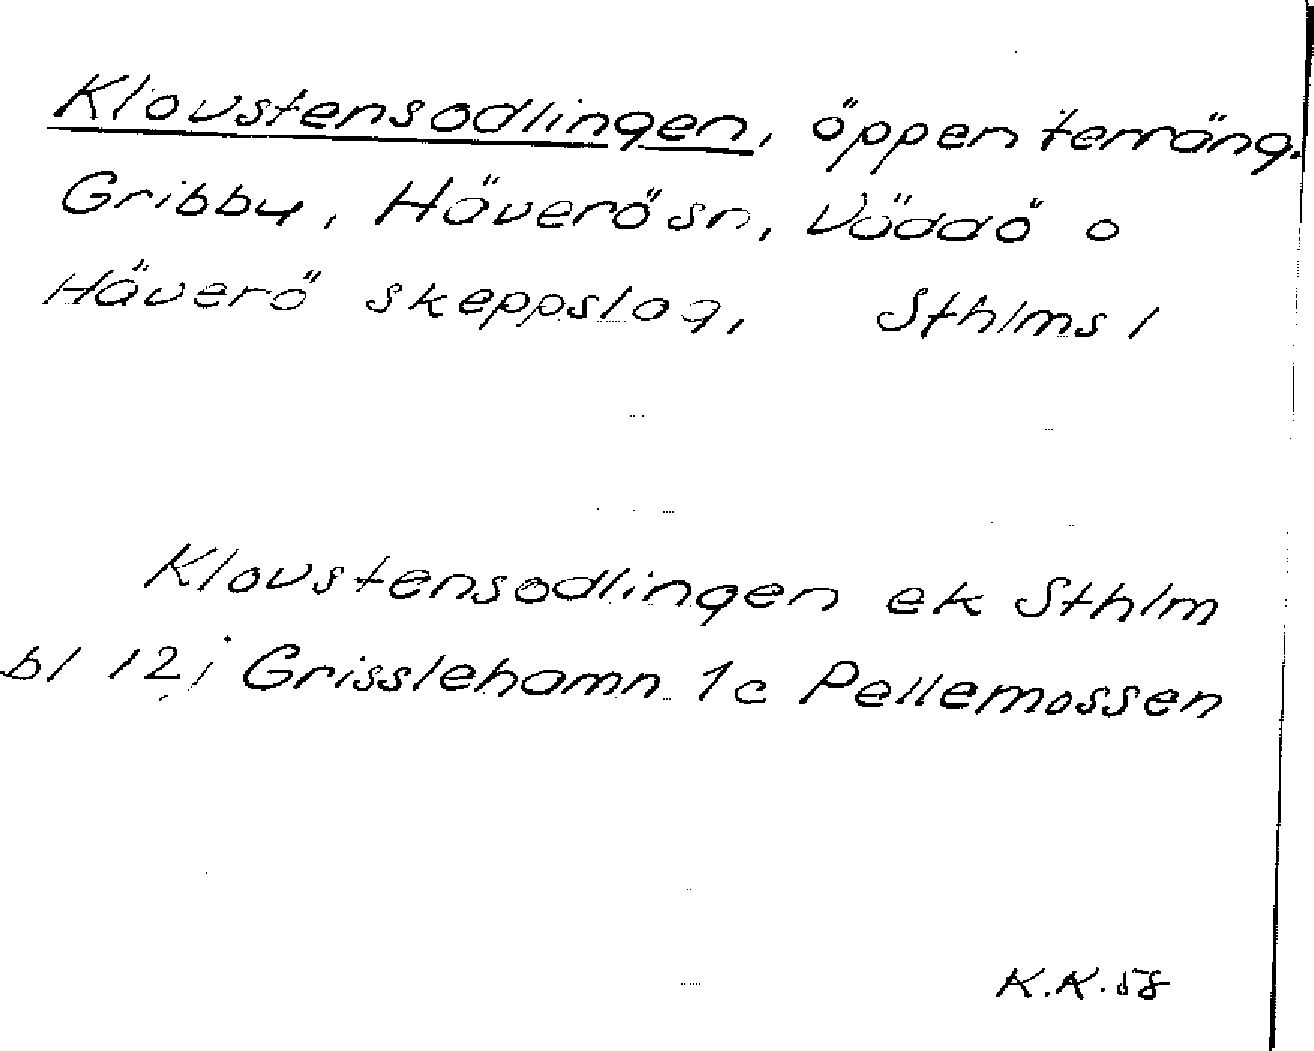 Klovstensodlingen, öppen terräng.
Gribby, Häverö sn, Väddö o
Häverö skeppslag, Sthlms l
Klovstensodlingen ek Sthlm
bl 12; Grisslehamn 1c Pellemossen
K.K. 58